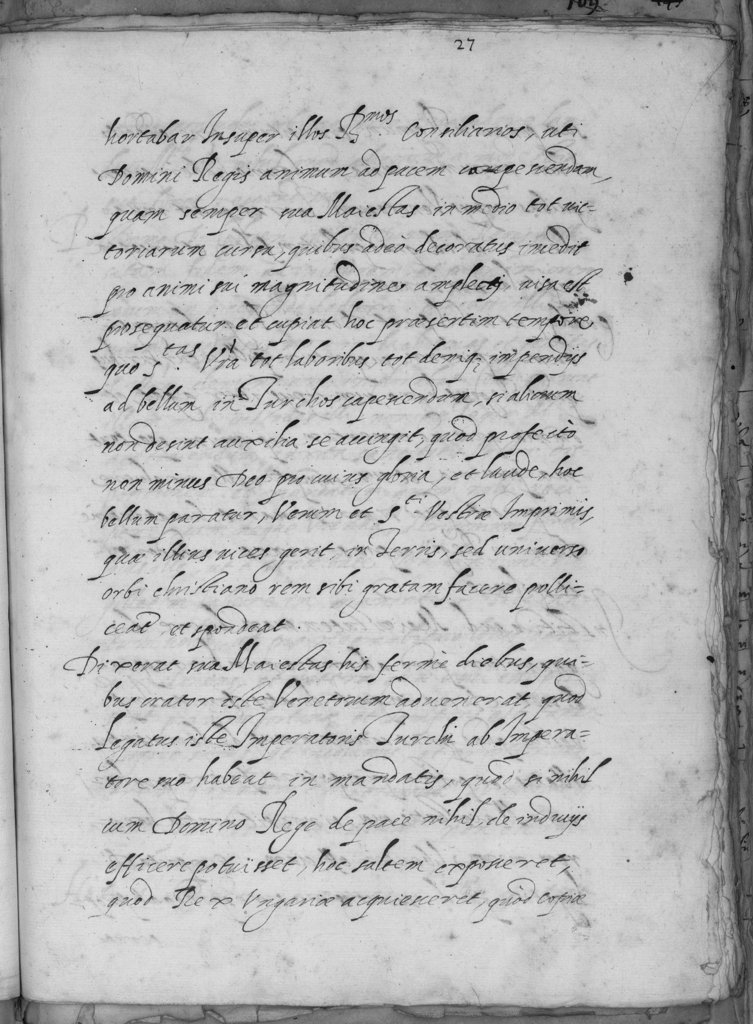 27
hortabar Insuper illos R.mos Consiliarios, uti
Domini Regis animum ad pacem
quam semper sua Maiestas in medio tot vic-
toriarum cursu, quibus adeò decoratus incedit
pro animi sui magnitudine amplecti, visa est
prosequatur et cupiat hoc praesertim tempore
quo S.tas Vra tot laboribus, tot deniq; impendijs
ad bellum in Turchos capenendum, si aliorum
non desint auxilia se accingit, quòd profectò
non minus Deo pro cuius gloria, et laude, hoc
bellum paratur, Verum et S.ti Vestrae Imprimis,
qua illius vices gerit, in Terris, sed universo
orbi christiano rem sibi gratam facere polli-
ceat, et spondeat.
Dixerat sua Maiestas his fermè diebus, qui-
bus orator iste Venetorum advenerat, quod
legatus iste Imperatoris Turchi ab Impera-
tore suo habeat in mandatis, quòd si nihil
cum Domino Rege de pace nihil, de inducijs
efficere potuisset, hoc saltem exposceret,
quòd Rex Ungariae acquiesceret, quòd copiae